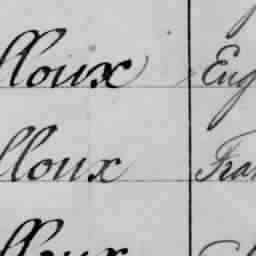 lloux Eug
lloux Fran
lloux